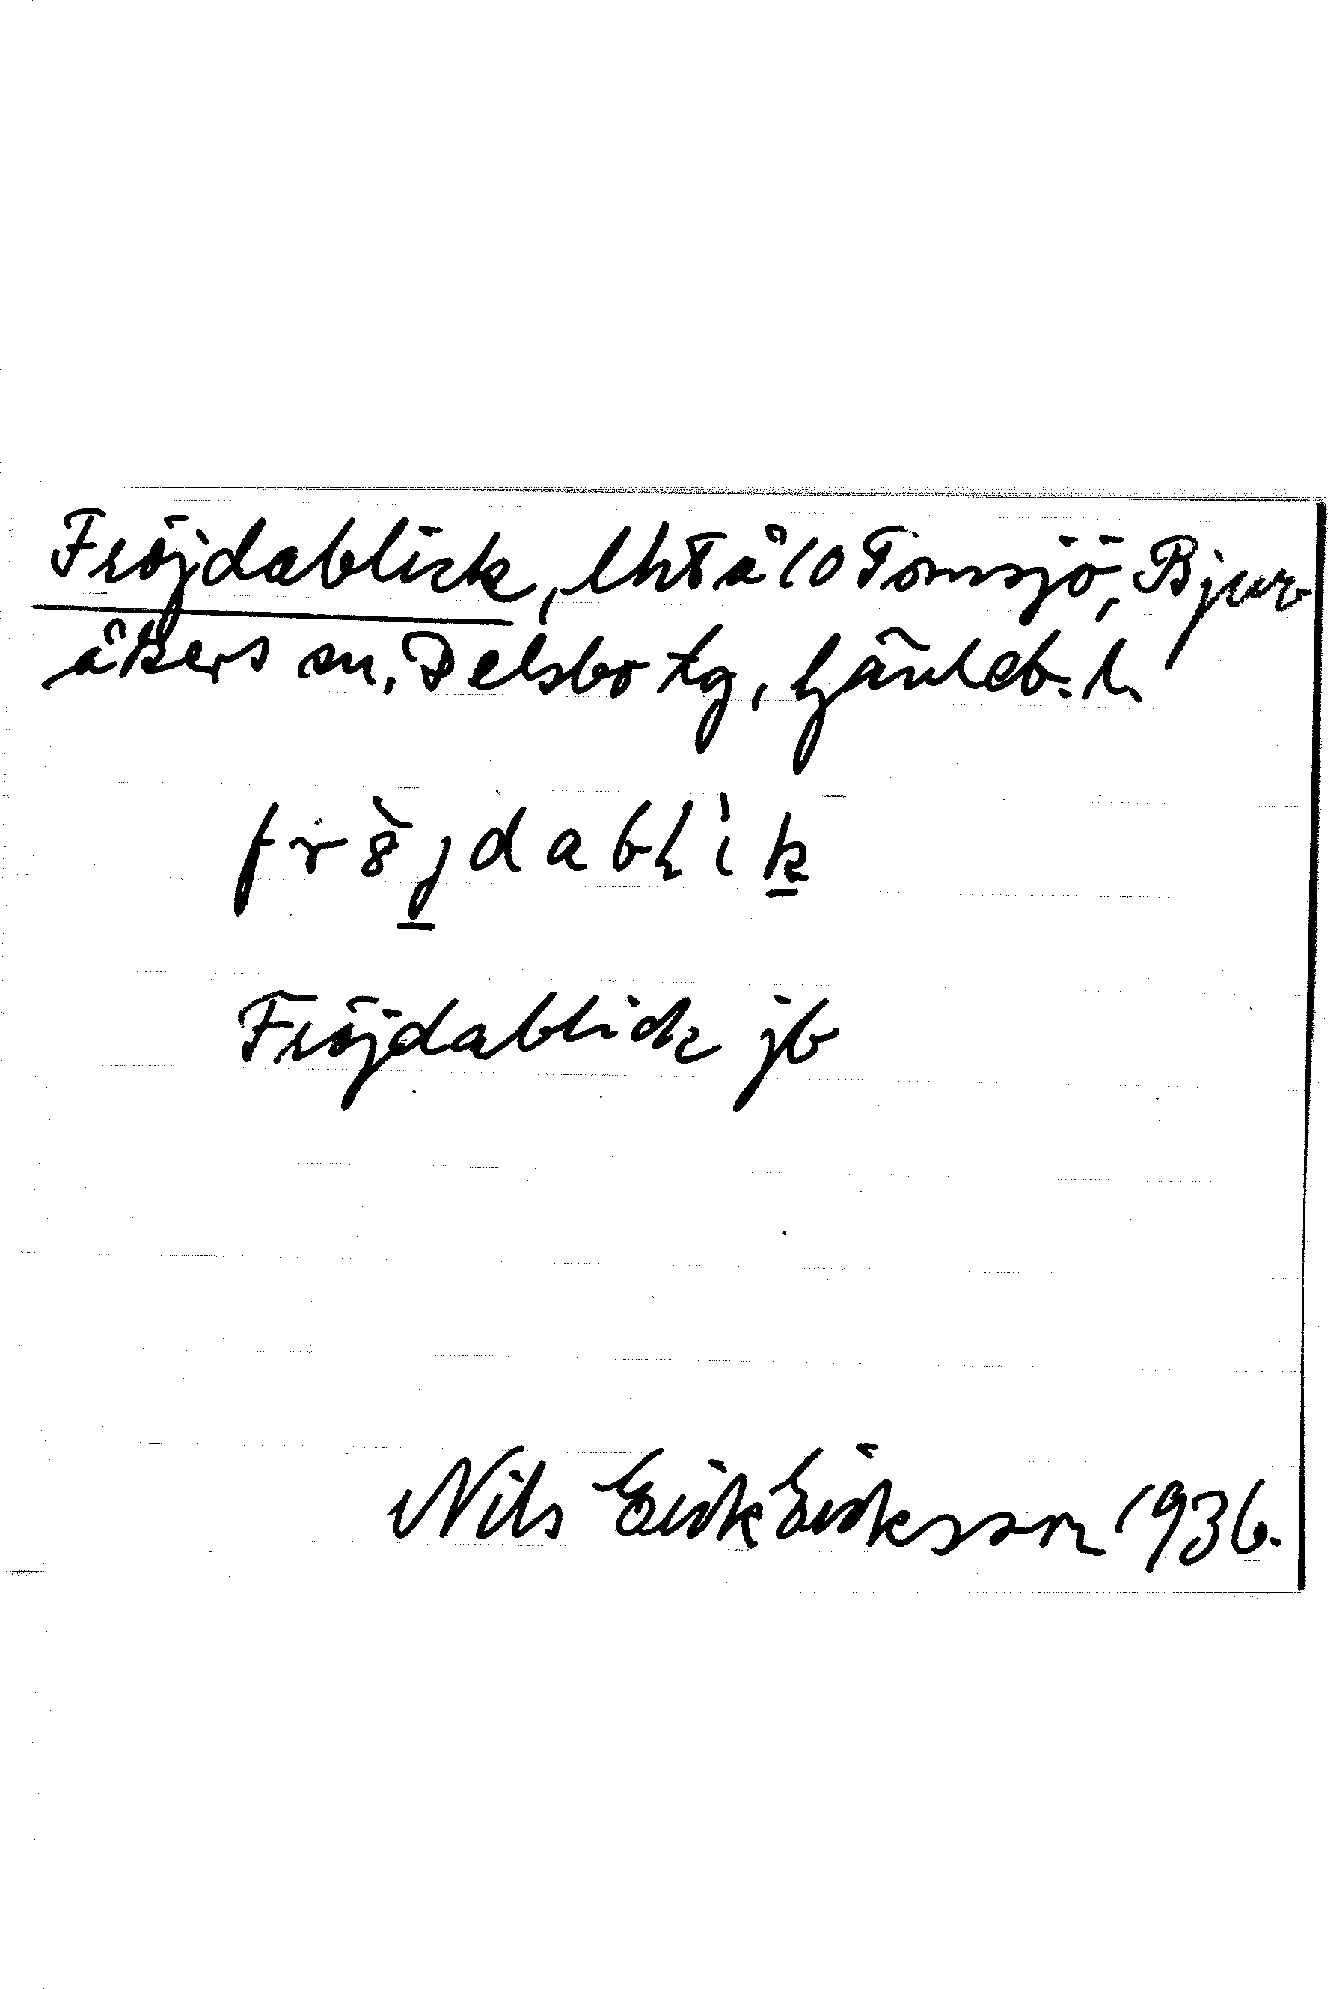 Fröjdablick, lht å 10 Tomsjö, Bjur-
åkers sn, Delsbo tg, Gävleb. l.
fröjdablik
Fröjdablick jb
Nils Erik Eriksson 1936.